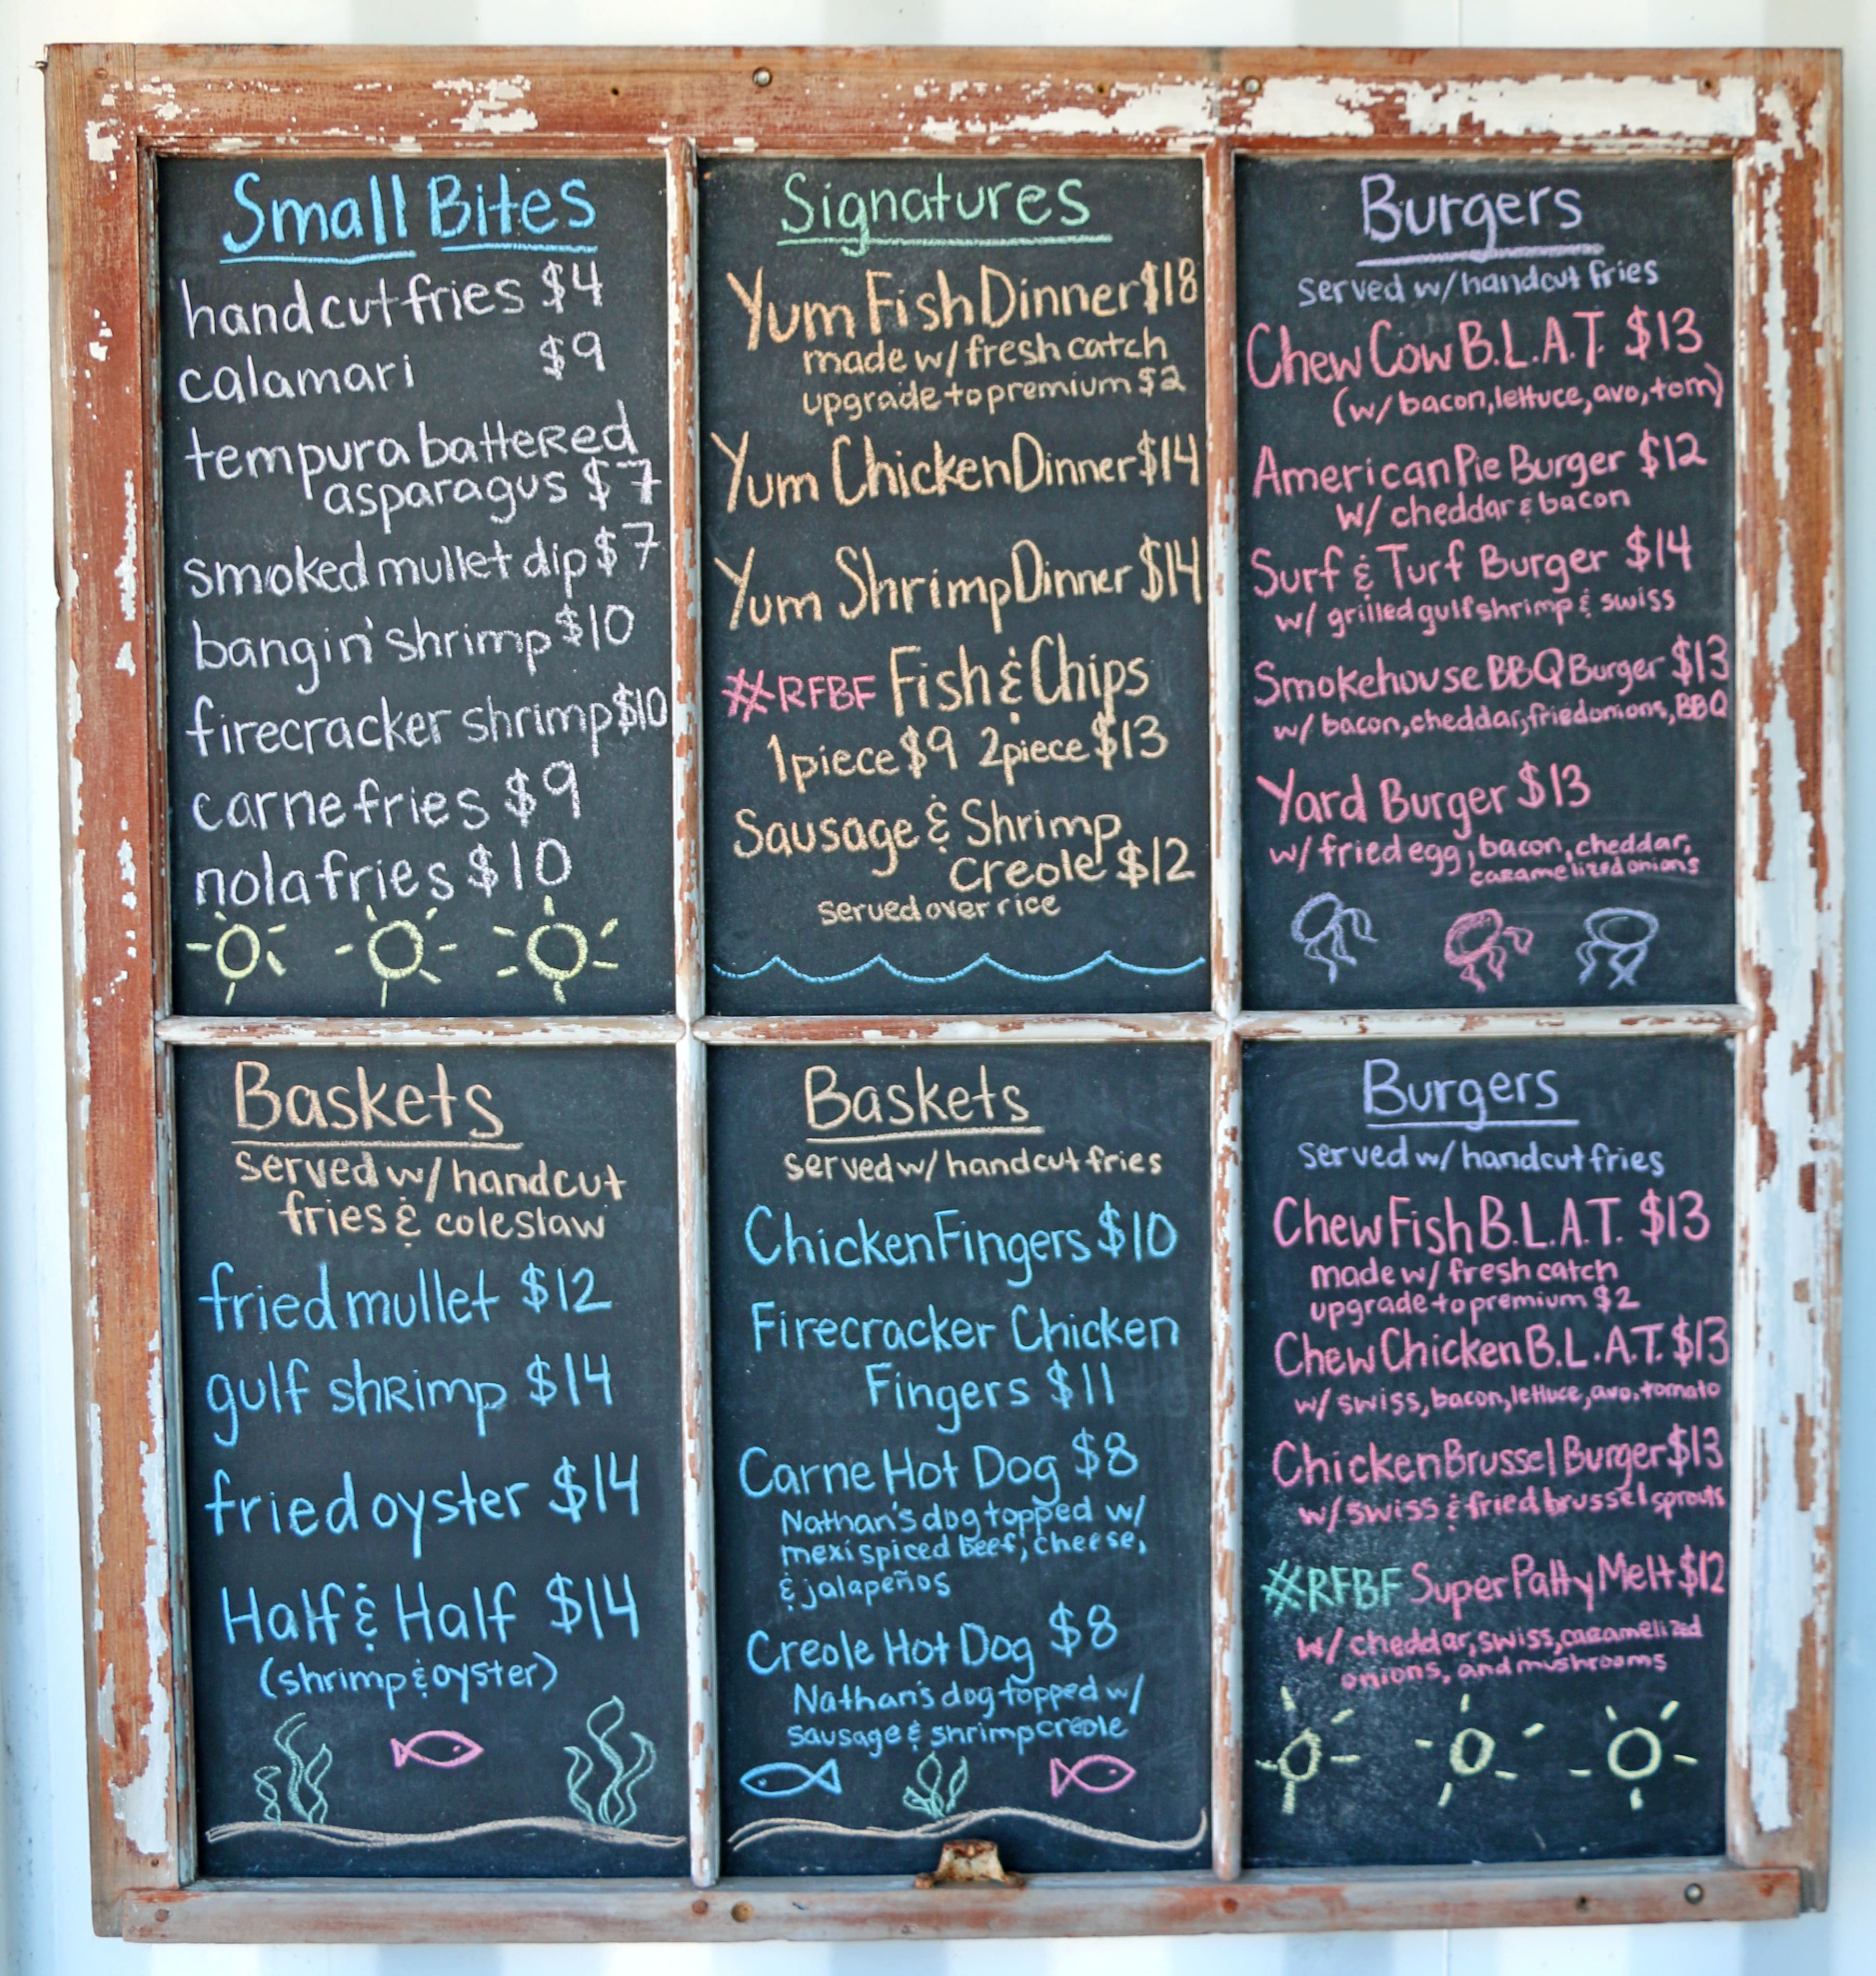 Small Bites
handcut fries $4
calamari $9
tempura battered
asparagus $7
smoked mullet dip $7
bangin' shrimp $10
firecracker shrimp $10
carne fries $9
nola fries $10
Signatures
Yum Fish Dinner $18
made w/ fresh catch
upgrade to premium $2
Yum Chicken Dinner $14
Yum Shrimp Dinner $14
#RFBF Fish & Chips
1piece $9 2piece $13
Sausage & Shrimp
Creole $12
served over rice
Burgers
served w/ handcut fries
Chew Cow B.L.A.T. $13
(w/ bacon, lettuce, avo, tom)
American Pie Burger $12
w/ cheddar & bacon
Surf & Turf Burger $14
w/ grilled gulf shrimp & swiss
Smokehouse BBQ Burger $13
w/ bacon, cheddar, fried onions, BBQ
Yard Burger $13
w/ fried egg, bacon, cheddar,
caramelized onions
Baskets
served w/ handcut
fries & coleslaw
fried mullet $12
gulf shrimp $14
fried oyster $14
Half & Half $14
(shrimp & oyster)
Baskets
served w/ handcut fries
Chicken Fingers $10
Firecracker Chicken
Fingers $11
Carne Hot Dog $8
Nathan's dog topped w/
mexi spiced beef, cheese,
& jalapeños
Creole Hot Dog $8
Nathan's dog topped w/
sausage & shrimp creole
Burgers
served w/ handcut fries
Chew Fish B.L.A.T. $13
made w/ fresh catch
upgrade to premium $2
Chew Chicken B.L.A.T. $13
w/ swiss, bacon, lettuce, avo, tomato
Chicken Brussel Burger $13
w/ swiss & fried brussel sprouts
#RFBF Super Patty Melt $12
w/ cheddar, swiss, caramelized
onions, and mushrooms